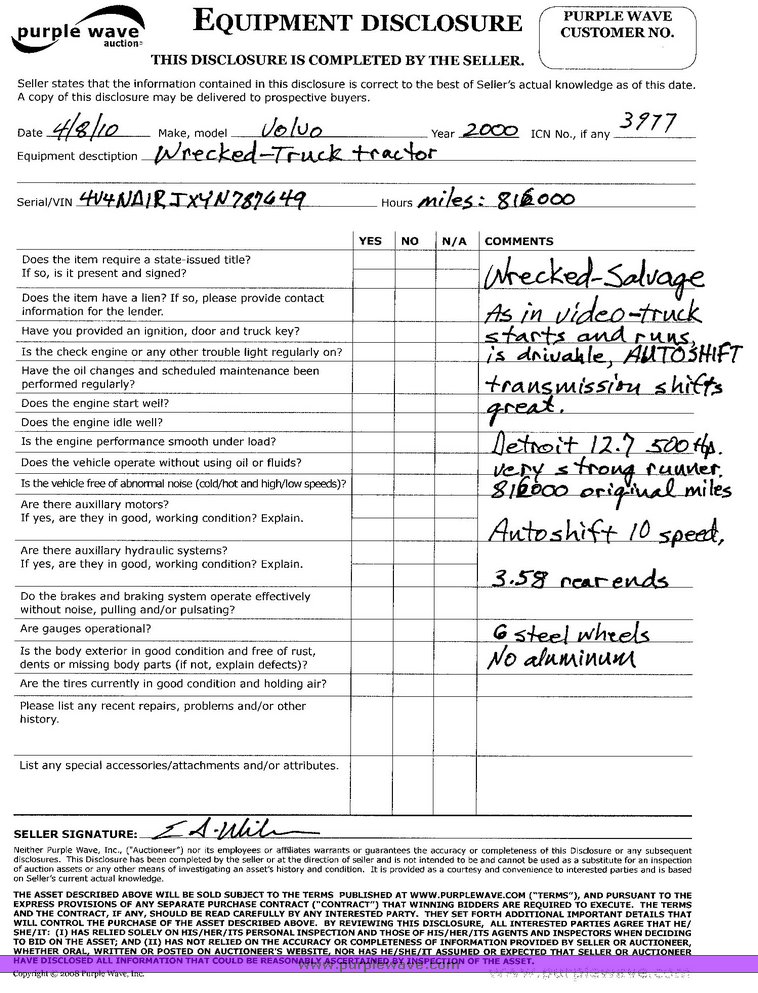 purple wave
auction
EQUIPMENT DISCLOSURE
PURPLE WAVE
CUSTOMER NO.
THIS DISCLOSURE IS COMPLETED BY THE SELLER.
Seller states that the information contained in this disclosure is correct to the best of Seller's actual knowledge as of this date.
A copy of this disclosure may be delivered to prospective buyers.
Date 4/8/10 Make, model Volvo Year 2000 ICN No., if any 3977
Equipment desctiption Wrecked-Truck tractor
Serial/VIN 4V4NA1RJXYN787649 Hours miles: 816000
YES NO N/A COMMENTS
Does the item require a state-issued title?
If so, is it present and signed?
Wrecked-Salvage
Does the item have a lien? If so, please provide contact
information for the lender.
As in video-truck
Have you provided an ignition, door and truck key?
starts and runs,
Is the check engine or any other trouble light regularly on?
is drivable, AUTOSHIFT
Have the oil changes and scheduled maintenance been
performed regularly?
transmission shifts
Does the engine start well?
great.
Does the engine idle well?
Is the engine performance smooth under load?
Detroit 12.7 500 Hp.
Does the vehicle operate without using oil or fluids?
very strong runner.
Is the vehicle free of abnormal noise (cold/hot and high/low speeds)?
816000 original miles
Are there auxillary motors?
If yes, are they in good, working condition? Explain.
Autoshift 10 speed,
Are there auxillary hydraulic systems?
If yes, are they in good, working condition? Explain.
3.58 rear ends
Do the brakes and braking system operate effectively
without noise, pulling and/or pulsating?
Are gauges operational?
6 steel wheels
Is the body exterior in good condition and free of rust,
dents or missing body parts (if not, explain defects)?
No aluminum
Are the tires currently in good condition and holding air?
Please list any recent repairs, problems and/or other
history.
List any special accessories/attachments and/or attributes.
SELLER SIGNATURE:
Neither Purple Wave, Inc., ("Auctioneer") nor its employees or affiliates warrants or guarantees the accuracy or completeness of this Disclosure or any subsequent
disclosures. This Disclosure has been completed by the seller or at the direction of seller and is not intended to be and cannot be used as a substitute for an inspection
of auction assets or any other means of investigating an asset's history and condition. It is provided as a courtesy and convenience to interested parties and is based
on Seller's current actual knowledge.
THE ASSET DESCRIBED ABOVE WILL BE SOLD SUBJECT TO THE TERMS PUBLISHED AT WWW.PURPLEWAVE.COM ("TERMS"), AND PURSUANT TO THE
EXPRESS PROVISIONS OF ANY SEPARATE PURCHASE CONTRACT ("CONTRACT") THAT WINNING BIDDERS ARE REQUIRED TO EXECUTE. THE TERMS
AND THE CONTRACT, IF ANY, SHOULD BE READ CAREFULLY BY ANY INTERESTED PARTY. THEY SET FORTH ADDITIONAL IMPORTANT DETAILS THAT
WILL CONTROL THE PURCHASE OF THE ASSET DESCRIBED ABOVE. BY REVIEWING THIS DISCLOSURE, ALL INTERESTED PARTIES AGREE THAT HE/
SHE/IT: (I) HAS RELIED SOLELY ON HIS/HER/ITS PERSONAL INSPECTION AND THOSE OF HIS/HER/ITS AGENTS AND INSPECTORS WHEN DECIDING
TO BID ON THE ASSET; AND (II) HAS NOT RELIED ON THE ACCURACY OR COMPLETENESS OF INFORMATION PROVIDED BY SELLER OR AUCTIONEER,
WHETHER ORAL, WRITTEN OR POSTED ON AUCTIONEER'S WEBSITE, NOR HAS HE/SHE/IT ASSUMED OR EXPECTED THAT SELLER OR AUCTIONEER
HAVE DISCLOSED ALL INFORMATION THAT COULD BE REASONABLY ASCERTAINED BY INSPECTION OF THE ASSET.
www.purplewave.com
Copyright © 2008 Purple Wave, Inc.
www.purplewave.com